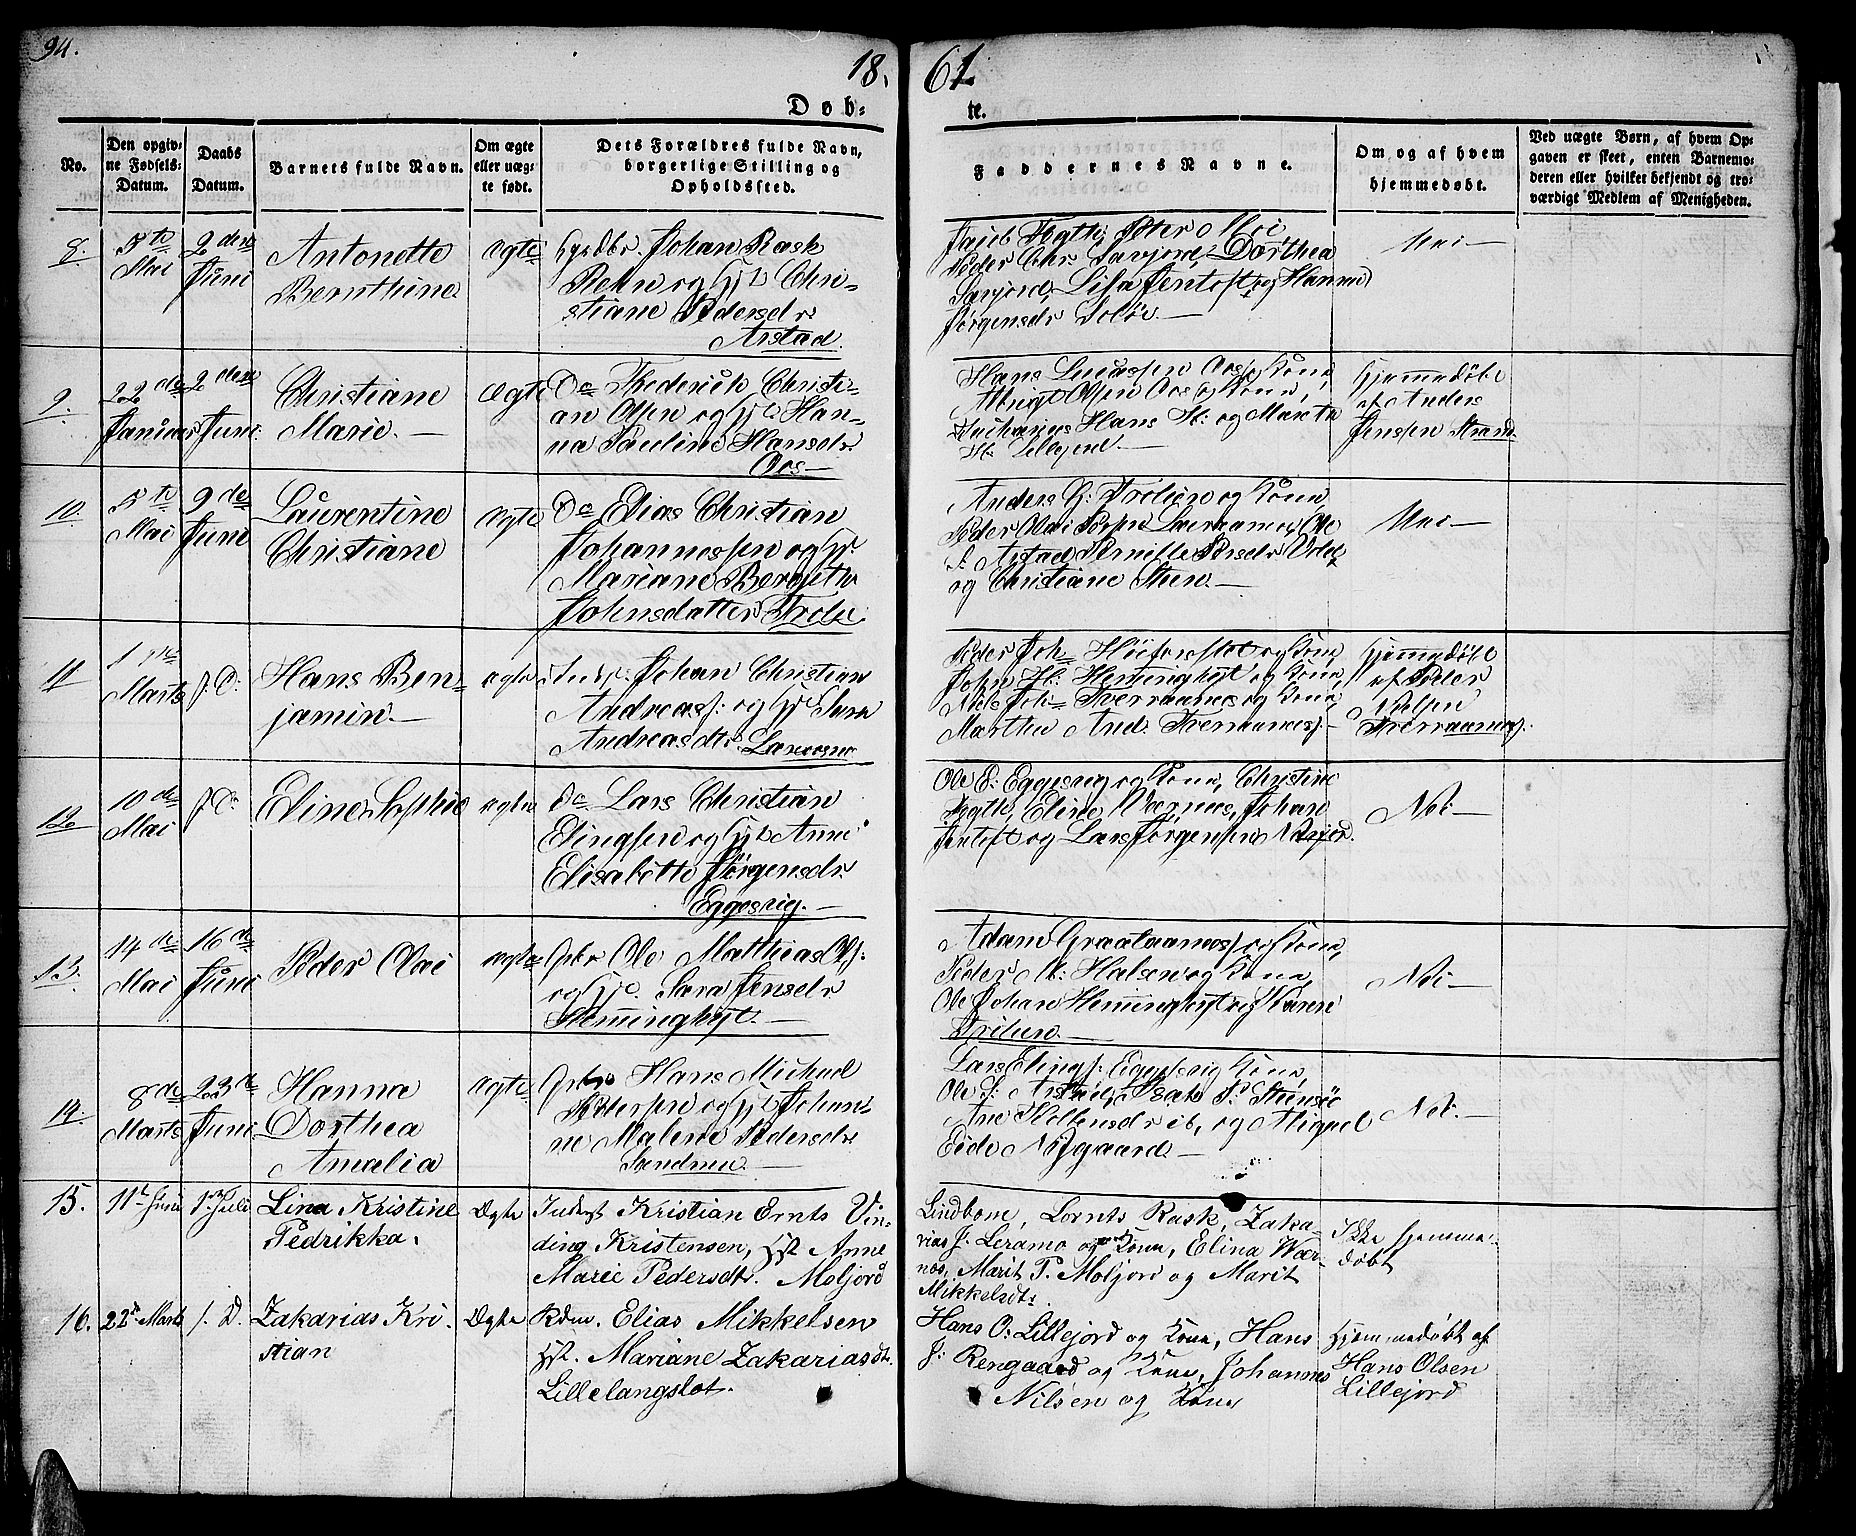 94.
18.
61.
Døb=
te.
No.
Den opgiv-
ne Fødsels-
Datum.
Daabs
Datum.
Barnets fulde Navn.
Om ægte
eller uæg-
te født.
Dets Forældres fulde Navn,
borgerlige Stilling og
Opholdssted.
Faddernes Navne.
Om og af hvem
hjemmedøbt.
Ved uægte Børn, af hvem Op-
gaven er skeet, enten Barnemo-
deren eller hvilket bekjendt og tro-
værdigt Medlem af Menigheden.
8.
5te
Mai
2den
Juni
Antonette
Bernthine
ægte
Johan Rask
Rehn og Chri-
stiane Pedersdr
Arstad.
Peder Chr. Savjord, Dorthea
Savjord, Lisa Jentoft og Hanna
Jørgensdr Soløe.—
Nei—
9.
22de
Januar
2den
Juni.
Christiane
Marie.—
ægte
Do Frederik Christi-
an Olsen og Han-
na Pauline Hansdr.
Oos—
Hans Lucassen Oos og Kone,
Albrigt Olsen Oos og Kone,
Zacharias Hans H. og Mareth
H. Lillegjord.—
Hjemmedøbt
af Anders
Jenssen Strand.
10.
5te
Mai
9de
Juni
Laurentine
Christiane
ægte
Do Elias Christian
Johannessen og
Mariane Bergitha
Johnsdatter Trolie
Anders H. Trolien og Kone,
Peder Olai
S. Arstad
og Christiane Steen.—
Nei—
11
1ste
Marts
f. D.
Hans Ben-
jamin.—
ægte
Johan Christian
Andreas. og Sara
Andreasdtr
Peder Joh. og Kone,
John H. Hemminghyt og Kone,
Nils Joh. Tverraanes og Kone,
Marthe And. Tverraanes.—
Hjemmedøbt
af Peder
Nilsen
Tverraanes.
12
10de
Mai
f. D.
Eline Sophie
ægte
do Lars Christian
Elingsen og Anne
Elisabeth Jørgensdr.
Eggesvig.—
Ole E. Eggesvig og Kone, Christine
Eline Værnes, Johan
Jentoft og Lars Jørgensen
Nei—
13.
14de
Mai
16de
Juni
Peder Olai
ægte
Ole Matthias Ols.
og Sara Jensdr
Hemminghyt.—
Adam Graataanes og Kone,
Peder M. Halsen og Kone,
Ole Johan Hemminghyt og Karen
Nei—
14.
8de
Marts
23de
Juni
Hanna
Dorthea
Amalia
ægte
Hans Michael
Pedersen og Johan-
ne Malene Pedersdr
Lars Elings. Eggesvig Kone,
Ole S. Arstad, Isak P. Steensøe
Ane ib, og Miquel
Eide Nygaard.—
Nei.—
15.
11te Juni
1ste Juli
Lina Kristine
Pedrikka.
Ægte
Inderst Kristian Ernts Vin-
ding Kristensen, Hst Anne
Marie Pedersdtr. Moljord
Lindbom, Lornts Rask, Zaka-
rias J. Leramo og Kone, Elina Vær-
nes, Marit P. Moljord og Marit
Mikkelsdtr
Ikke hjemme-
døbt
16.
22de Marts
f. D.
Zakarias Kri-
stian
Ægte
Elias Mikkelsen
Hst. Mariane Zakariasdt.
Lillelangslet.
Hans O. Lillejord og Kone, Hans
J. Rengaard og Kone, Johannes
Nilsen og Kone
Hjemmedøbt af
Hans Olsen
Lillejord